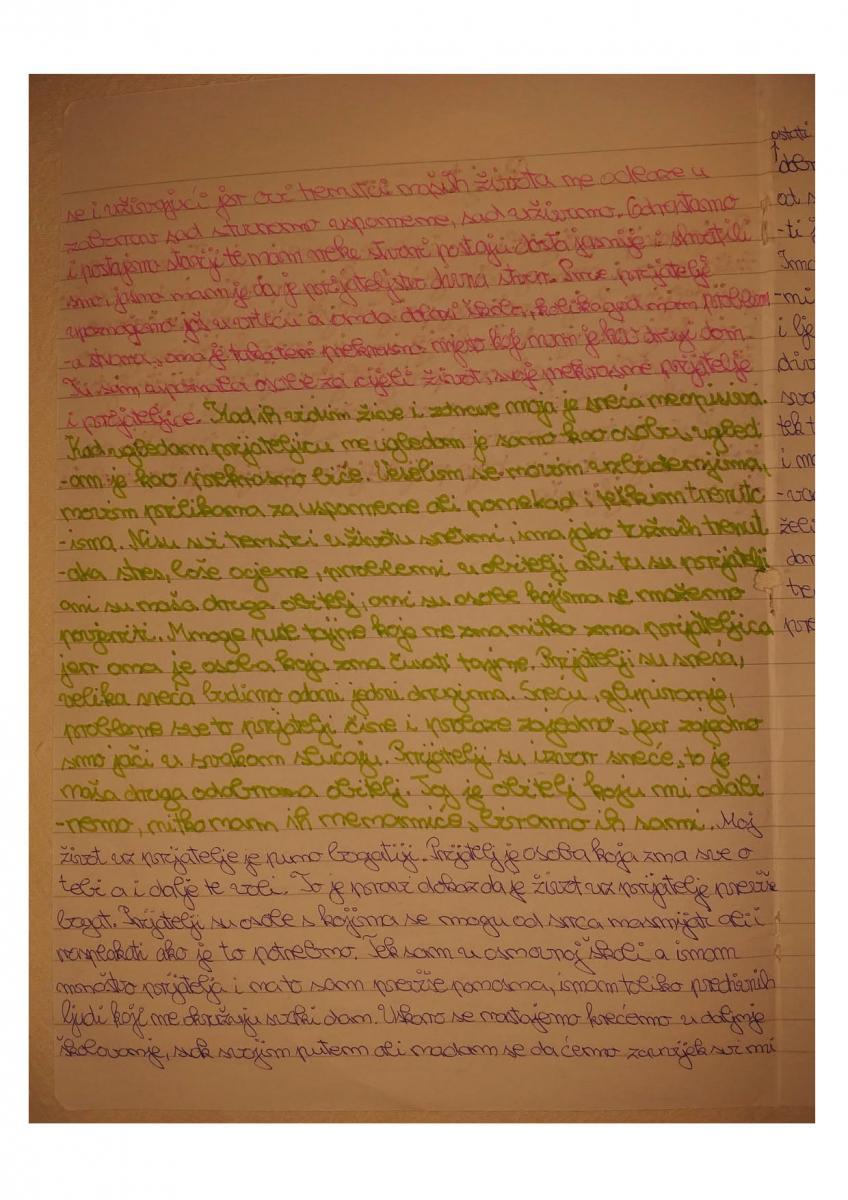 se i uživajući jer ovi trenutci naših života ne odlaze u
zaborav sad stvaramo uspomene, sad uživamo. Odrastamo
i postajemo stariji te nam neke stvari postaju dosta jasnije i shvatili
smo, jasno nam je da je prijateljstvo divna stvar. Prve prijatelje
upoznajemo još u vrtiću a onda dolazi škola, koliko god nam problem
-a stvara, ona je prekrasno mjesto koje nam je kao drugi dom.
Tu sam upoznala osobe za cijeli život, svoje prekrasne prijatelje
i prijateljice. Kad ih vidim žive i zdrave moja je sreća neopisiva.
Kad ugledam prijateljicu ne ugledam je samo kao osobu, ugled
-am je kao prekrasno biće. Veselim se novim uzbuđenjima,
novim prilikama za uspomene ali ponekad i teškim trenutc
-ima. Nisu svi trenutci u životu sretni, ima jako tužnih trenut
-aka stres, loše ocjene, problemi u obitelji ali tu su prijatelji
oni su naša druga obitelj, oni su osobe kojima se možemo
povjeriti. Mnoge puste tajne koje ne zna nitko zna prijateljica
jer ona je osoba koja zna čuvati tajne. Prijatelji su sreća,
velika sreća budimo odani jedni drugima. Sreću, glupiranje,
probleme sve to prijatelji čine i prolaze zajedno, jer zajedno
smo jači u svakom slučaju. Prijatelji su izvor sreće, to je
naša druga odabrana obitelj. To je obitelj koju mi odabi
-remo, nitko nam ih ne nameće, biramo ih sami. Moj
život uz prijatelje je puno bogatiji. Prijatelj je osoba koja zna sve o
tebi a i dalje te voli. To je pravi dokaz da je život uz prijatelje previše
bogat. Prijatelji su osobe s kojima se mogu od srca nasmijati ali i
rasplakati ako je to potrebno. Tek sam u osnovnoj školi a imam
mnoštvo prijatelja i na to sam previše ponosna, imam toliko predivnih
ljudi koji me okružuju svaki dan. Uskoro se rastajemo krećemo u daljnje
školovanje, svak svojim putem ali nadam se da ćemo zauvijek svi mi
ostati
od s
-ti
-mi
i lje
div
svo
tek t
i m
želi